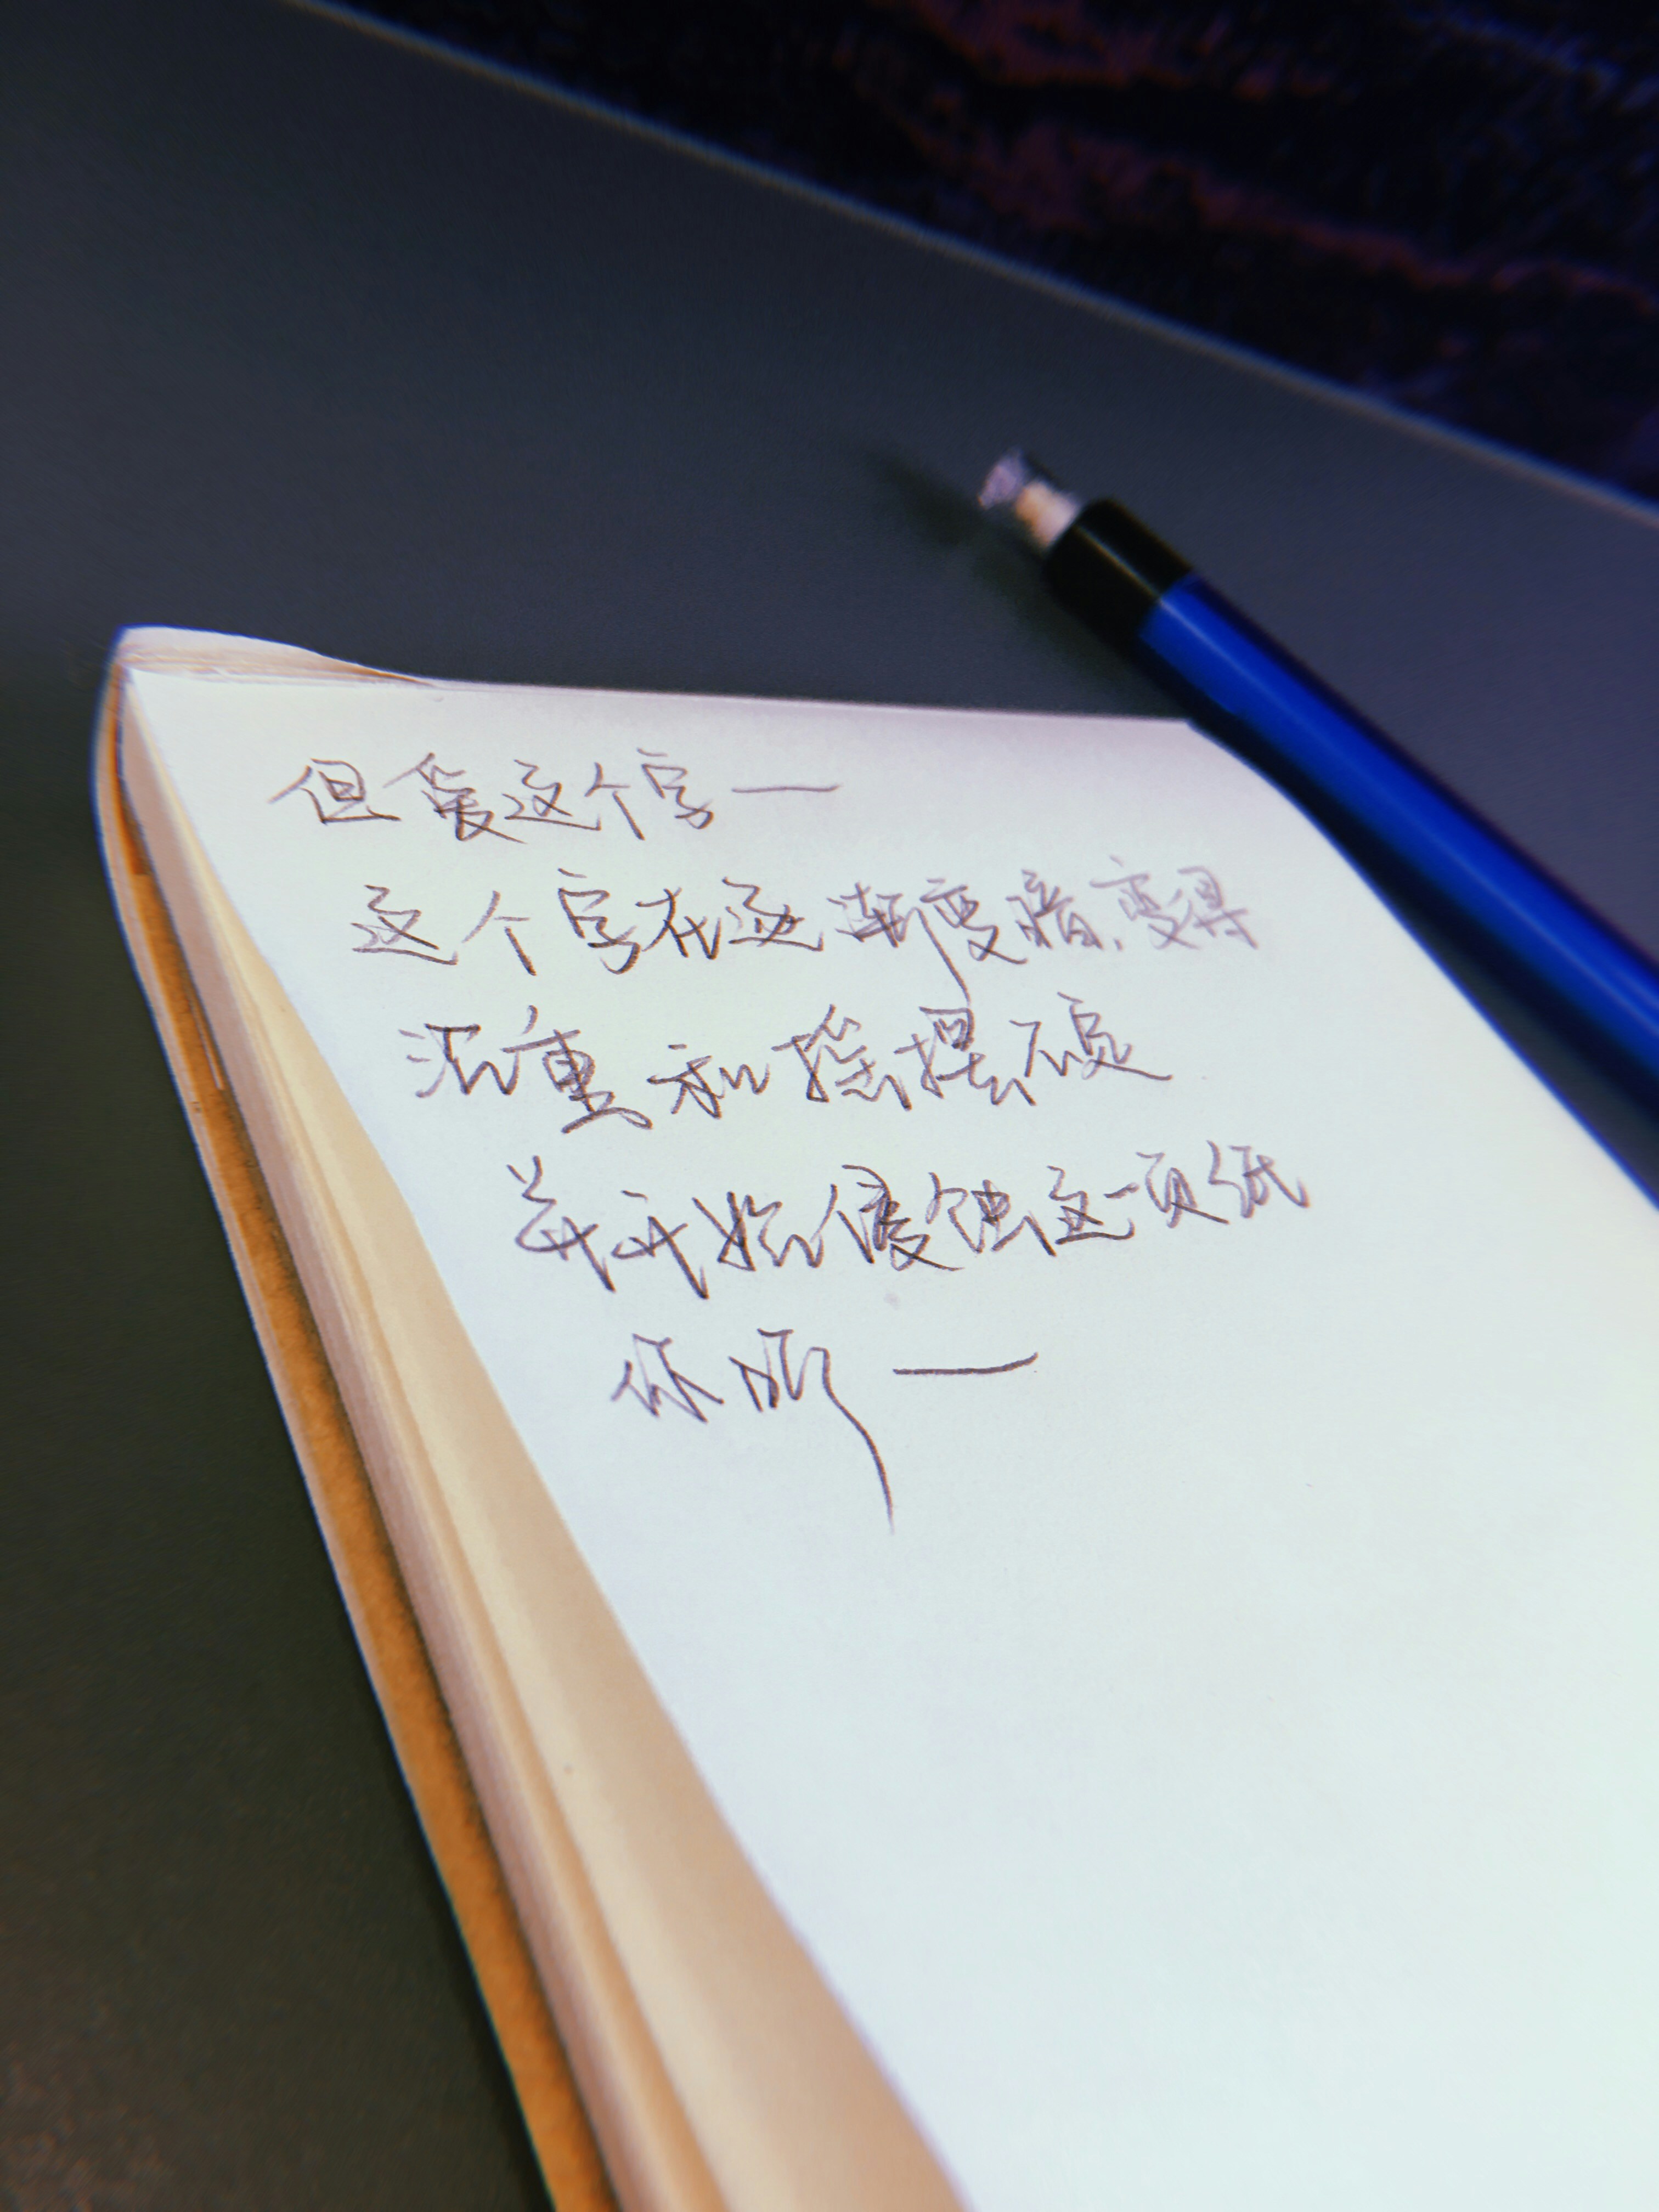 但爱这个字一
这个字在逐渐变暗，变得
沉重和摇摆不定
并开始侵蚀这一页纸
你听一